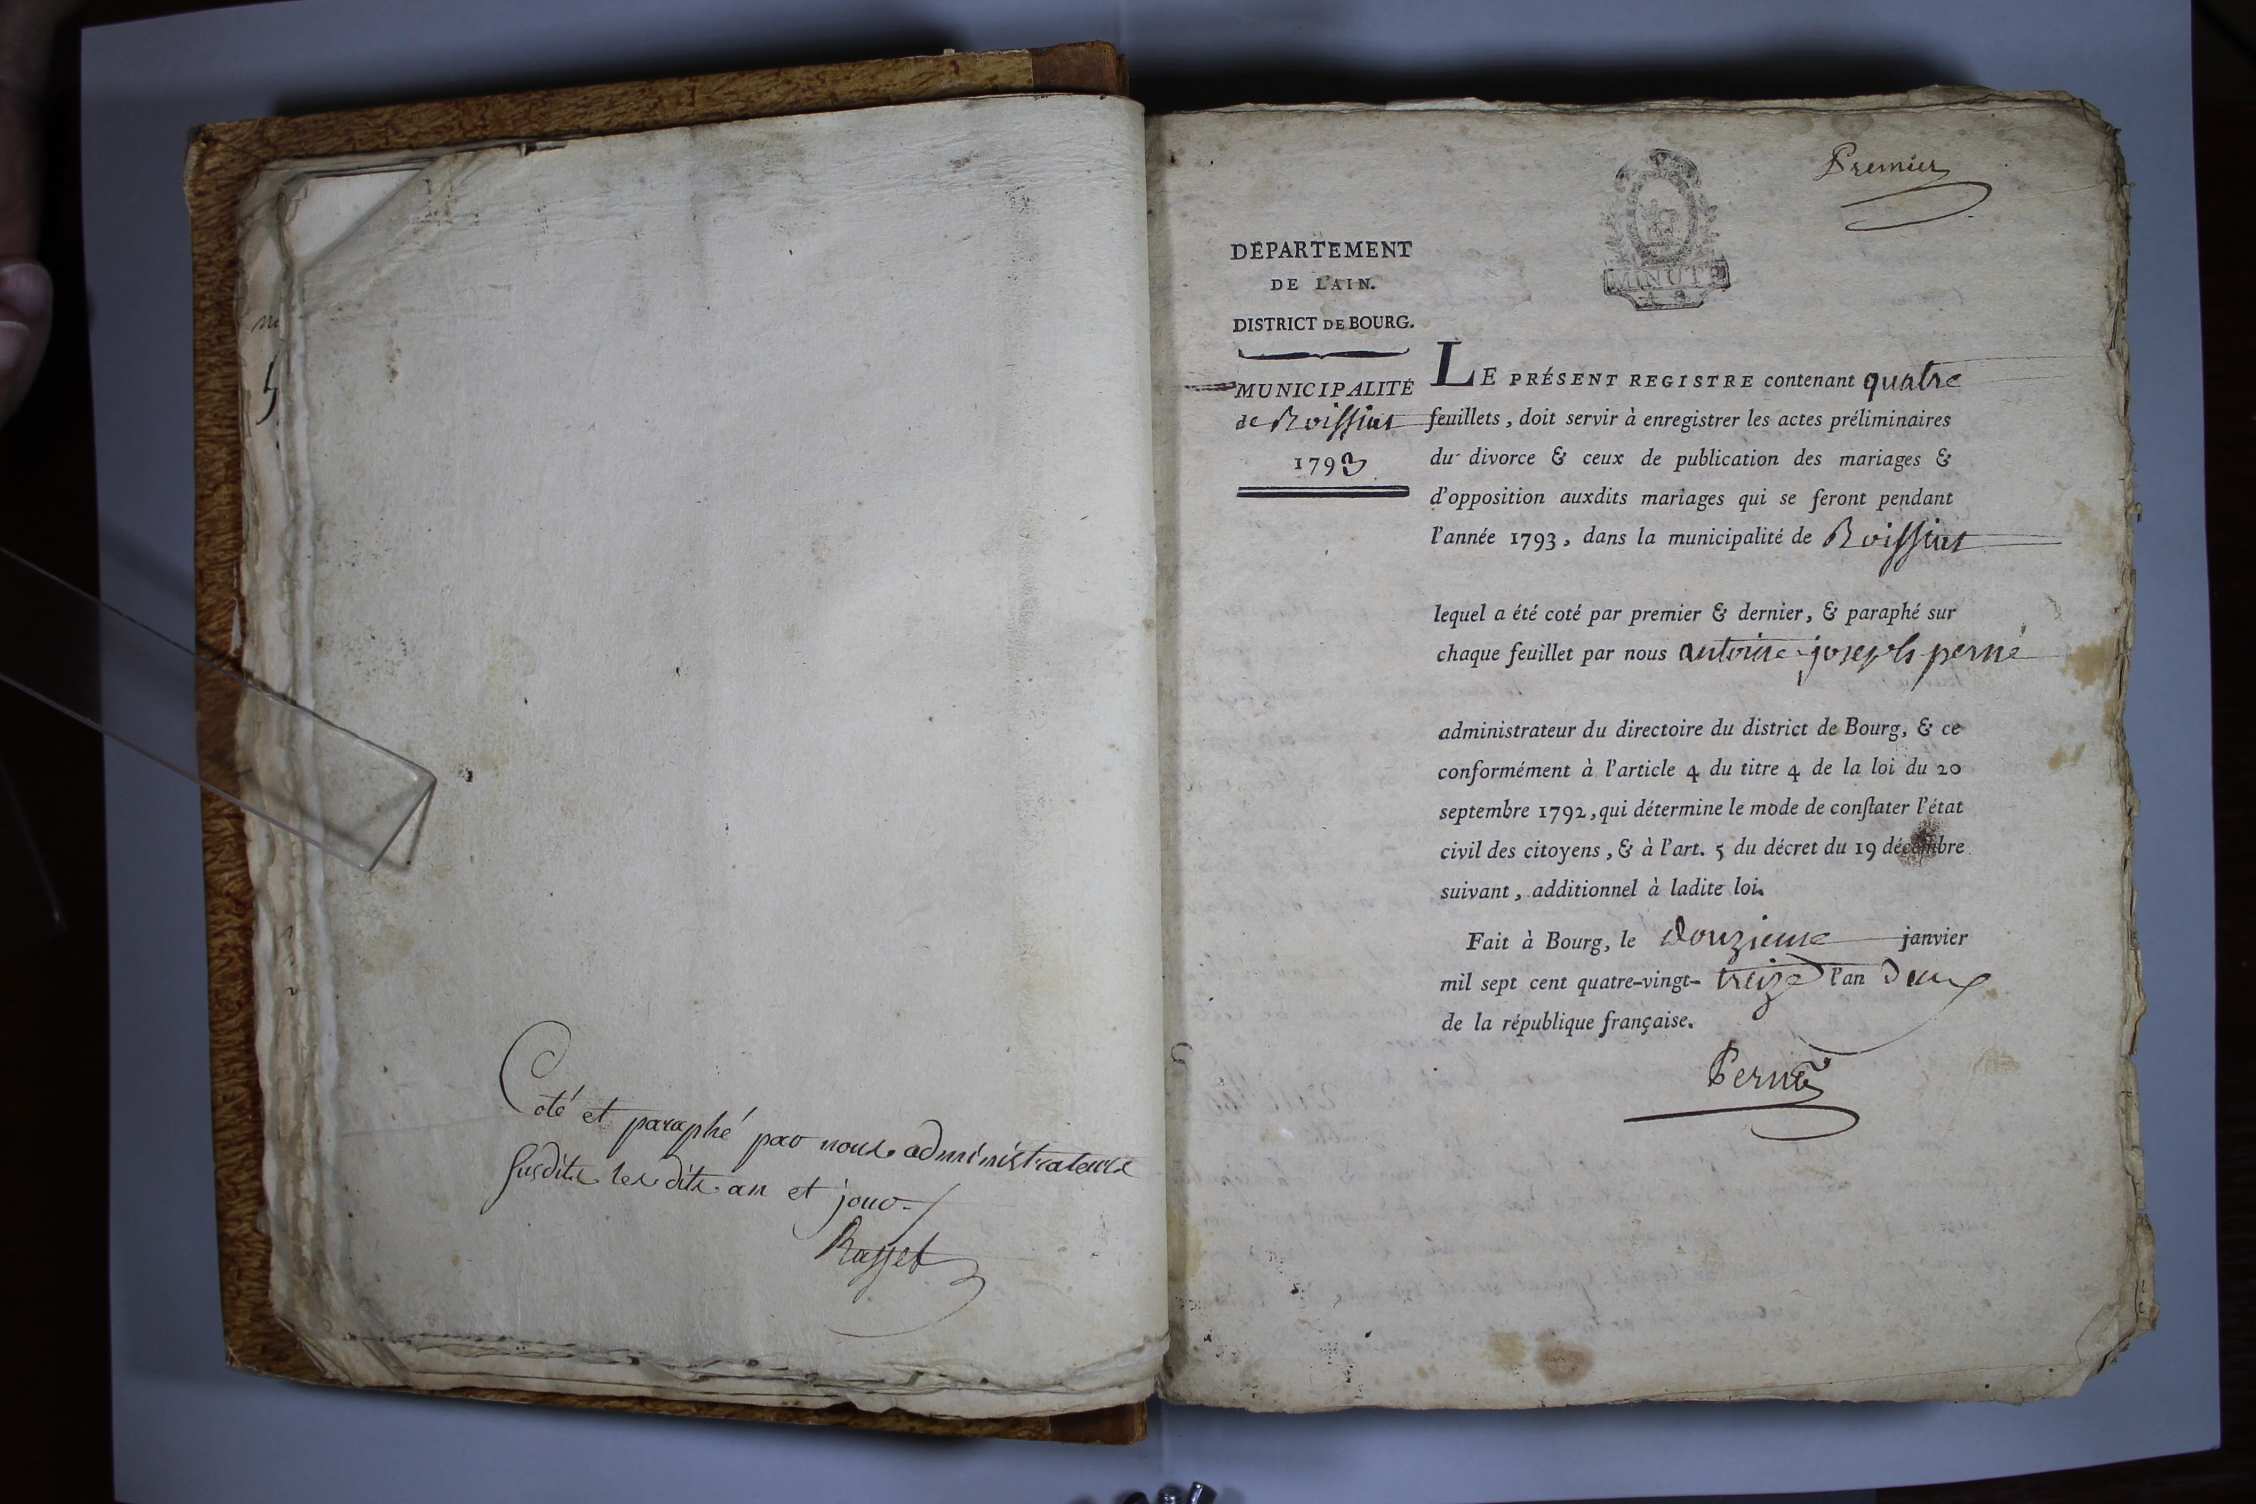 Coté et paraphé par nous administrateurs
susdits les dits an et jour
Rasset
Premier
MINUTE
DÉPARTEMENT
DE L'AIN.
DISTRICT DE BOURG.
MUNICIPALITÉ
de Roissiat
1793
LE PRÉSENT REGISTRE contenant quatre
feuillets, doit servir à enregistrer les actes préliminaires
du divorce & ceux de publication des mariages &
d'opposition auxdits mariages qui se feront pendant
l'année 1793, dans la municipalité de Roissiat
lequel a été coté par premier & dernier, & paraphé sur
chaque feuillet par nous antoine joseph perné
administrateur du directoire du district de Bourg, & ce
conformément à l'article 4 du titre 4 de la loi du 20
septembre 1792, qui détermine le mode de conſtater l'état
civil des citoyens, & à l'art. 5 du décret du 19 décembre
suivant, additionnel à ladite loi.
Fait à Bourg, le douzieme janvier
mil sept cent quatre-vingt- treize l'an deux
de la république française.
Perné